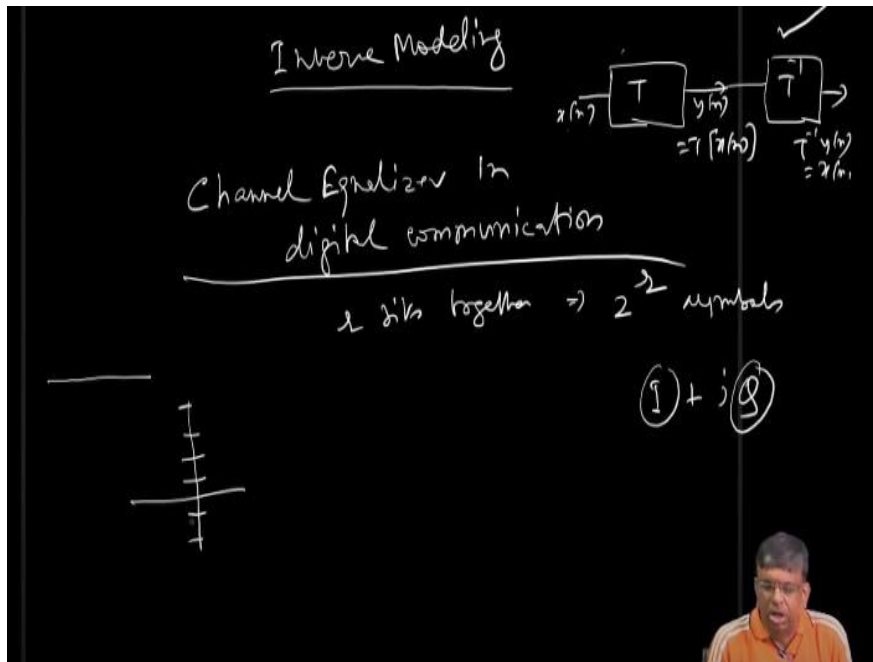 Inverse Modeling
x(n) T y(n) T⁻¹
= T[x(n)] T⁻¹ y(n)
= x(n.
Channel Equalizer in
digital communication
r bits together ⇒ 2^r symbols
I + j Q